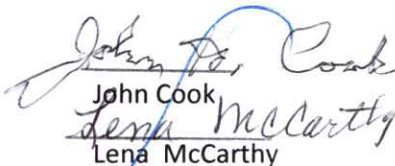 John A. Cook
John Cook
Lena McCarthy
Lena McCarthy